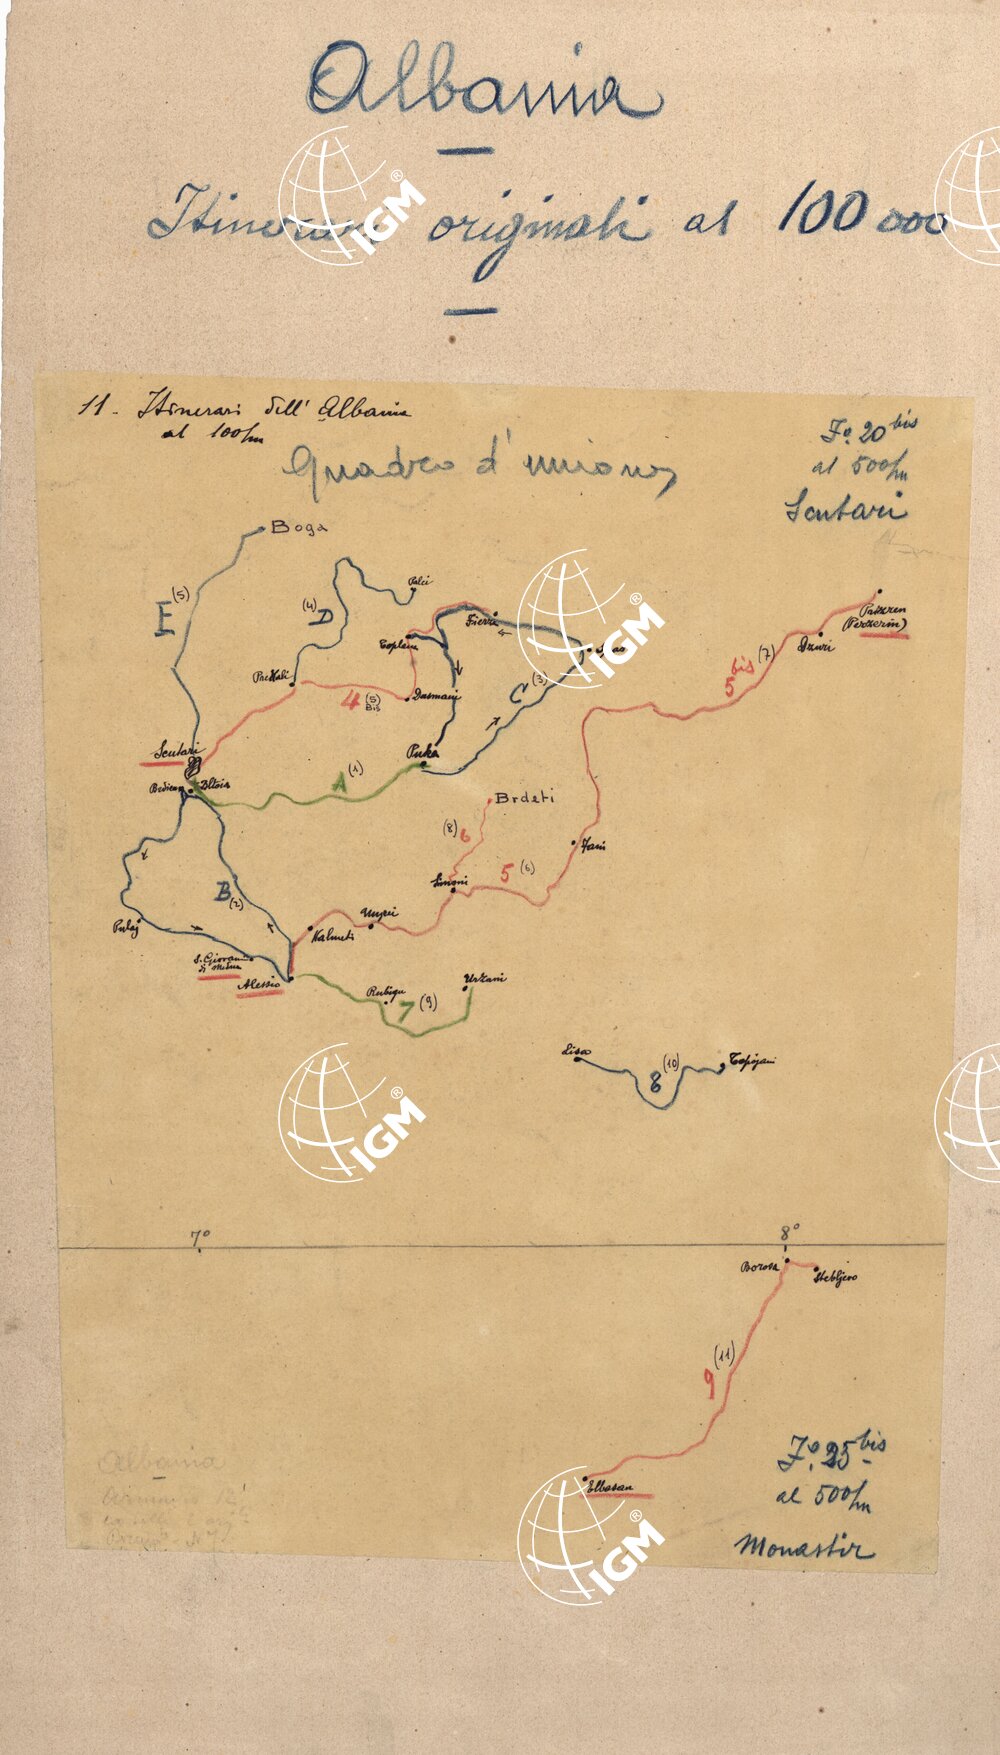 Albania
Itinerari originali al 100 000
11 - Itinerari dell' Albania
al 100/m
Quadro d'unione
Fo. 20 bis
al 500/m
Scutari
Boga
E (5)
(4) D
Palci
Toplana
Fierza
Spas
Prizren
(Perzerin)
Dzuri
5 bis (7)
C (3)
4 (5) Bis
Dusmani
Puka
Scutari
A (1)
Brdeti
(8) 6
5 (6)
Fani
Simoni
B (2)
Pulaj
Kalmeti
S. Giovanni
di Medua
Alessio
Rubigu
7 (9)
8 (10)
7°
8°
Borova
Stebljevo
(11)
9
Elbasan
Fo. 25 bis
al 500/m
Monastir
Albania
IGM
IGM
IGM
IGM